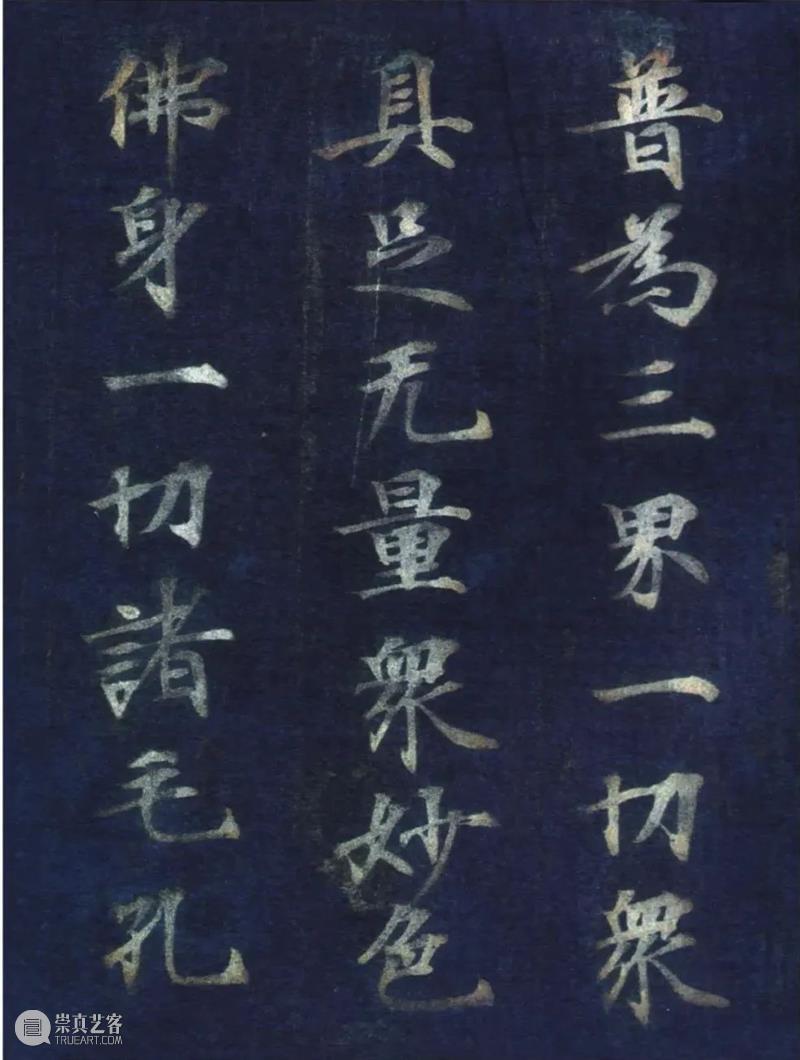 普為三界一切衆
具足无量衆妙色
佛身一切諸毛孔
崇真艺客
TRUEART.COM